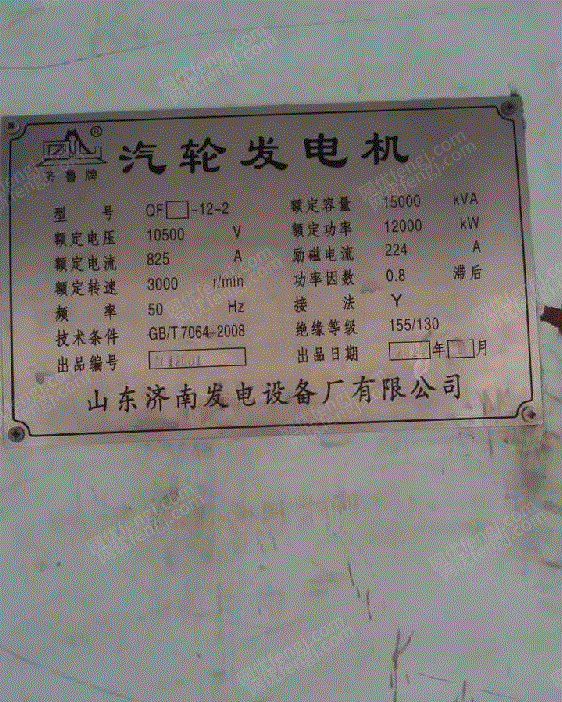 齐鲁牌 ®
汽轮发电机
型号 QF□-12-2 额定容量 15000 kVA
额定电压 10500 V 额定功率 12000 kW
额定电流 825 A 励磁电流 224 A
额定转速 3000 r/min 功率因数 0.8 滞后
频率 50 Hz 接法 Y
技术条件 GB/T 7064-2008 绝缘等级 155/130
出品编号 出品日期 年 月
山东济南发电设备厂有限公司